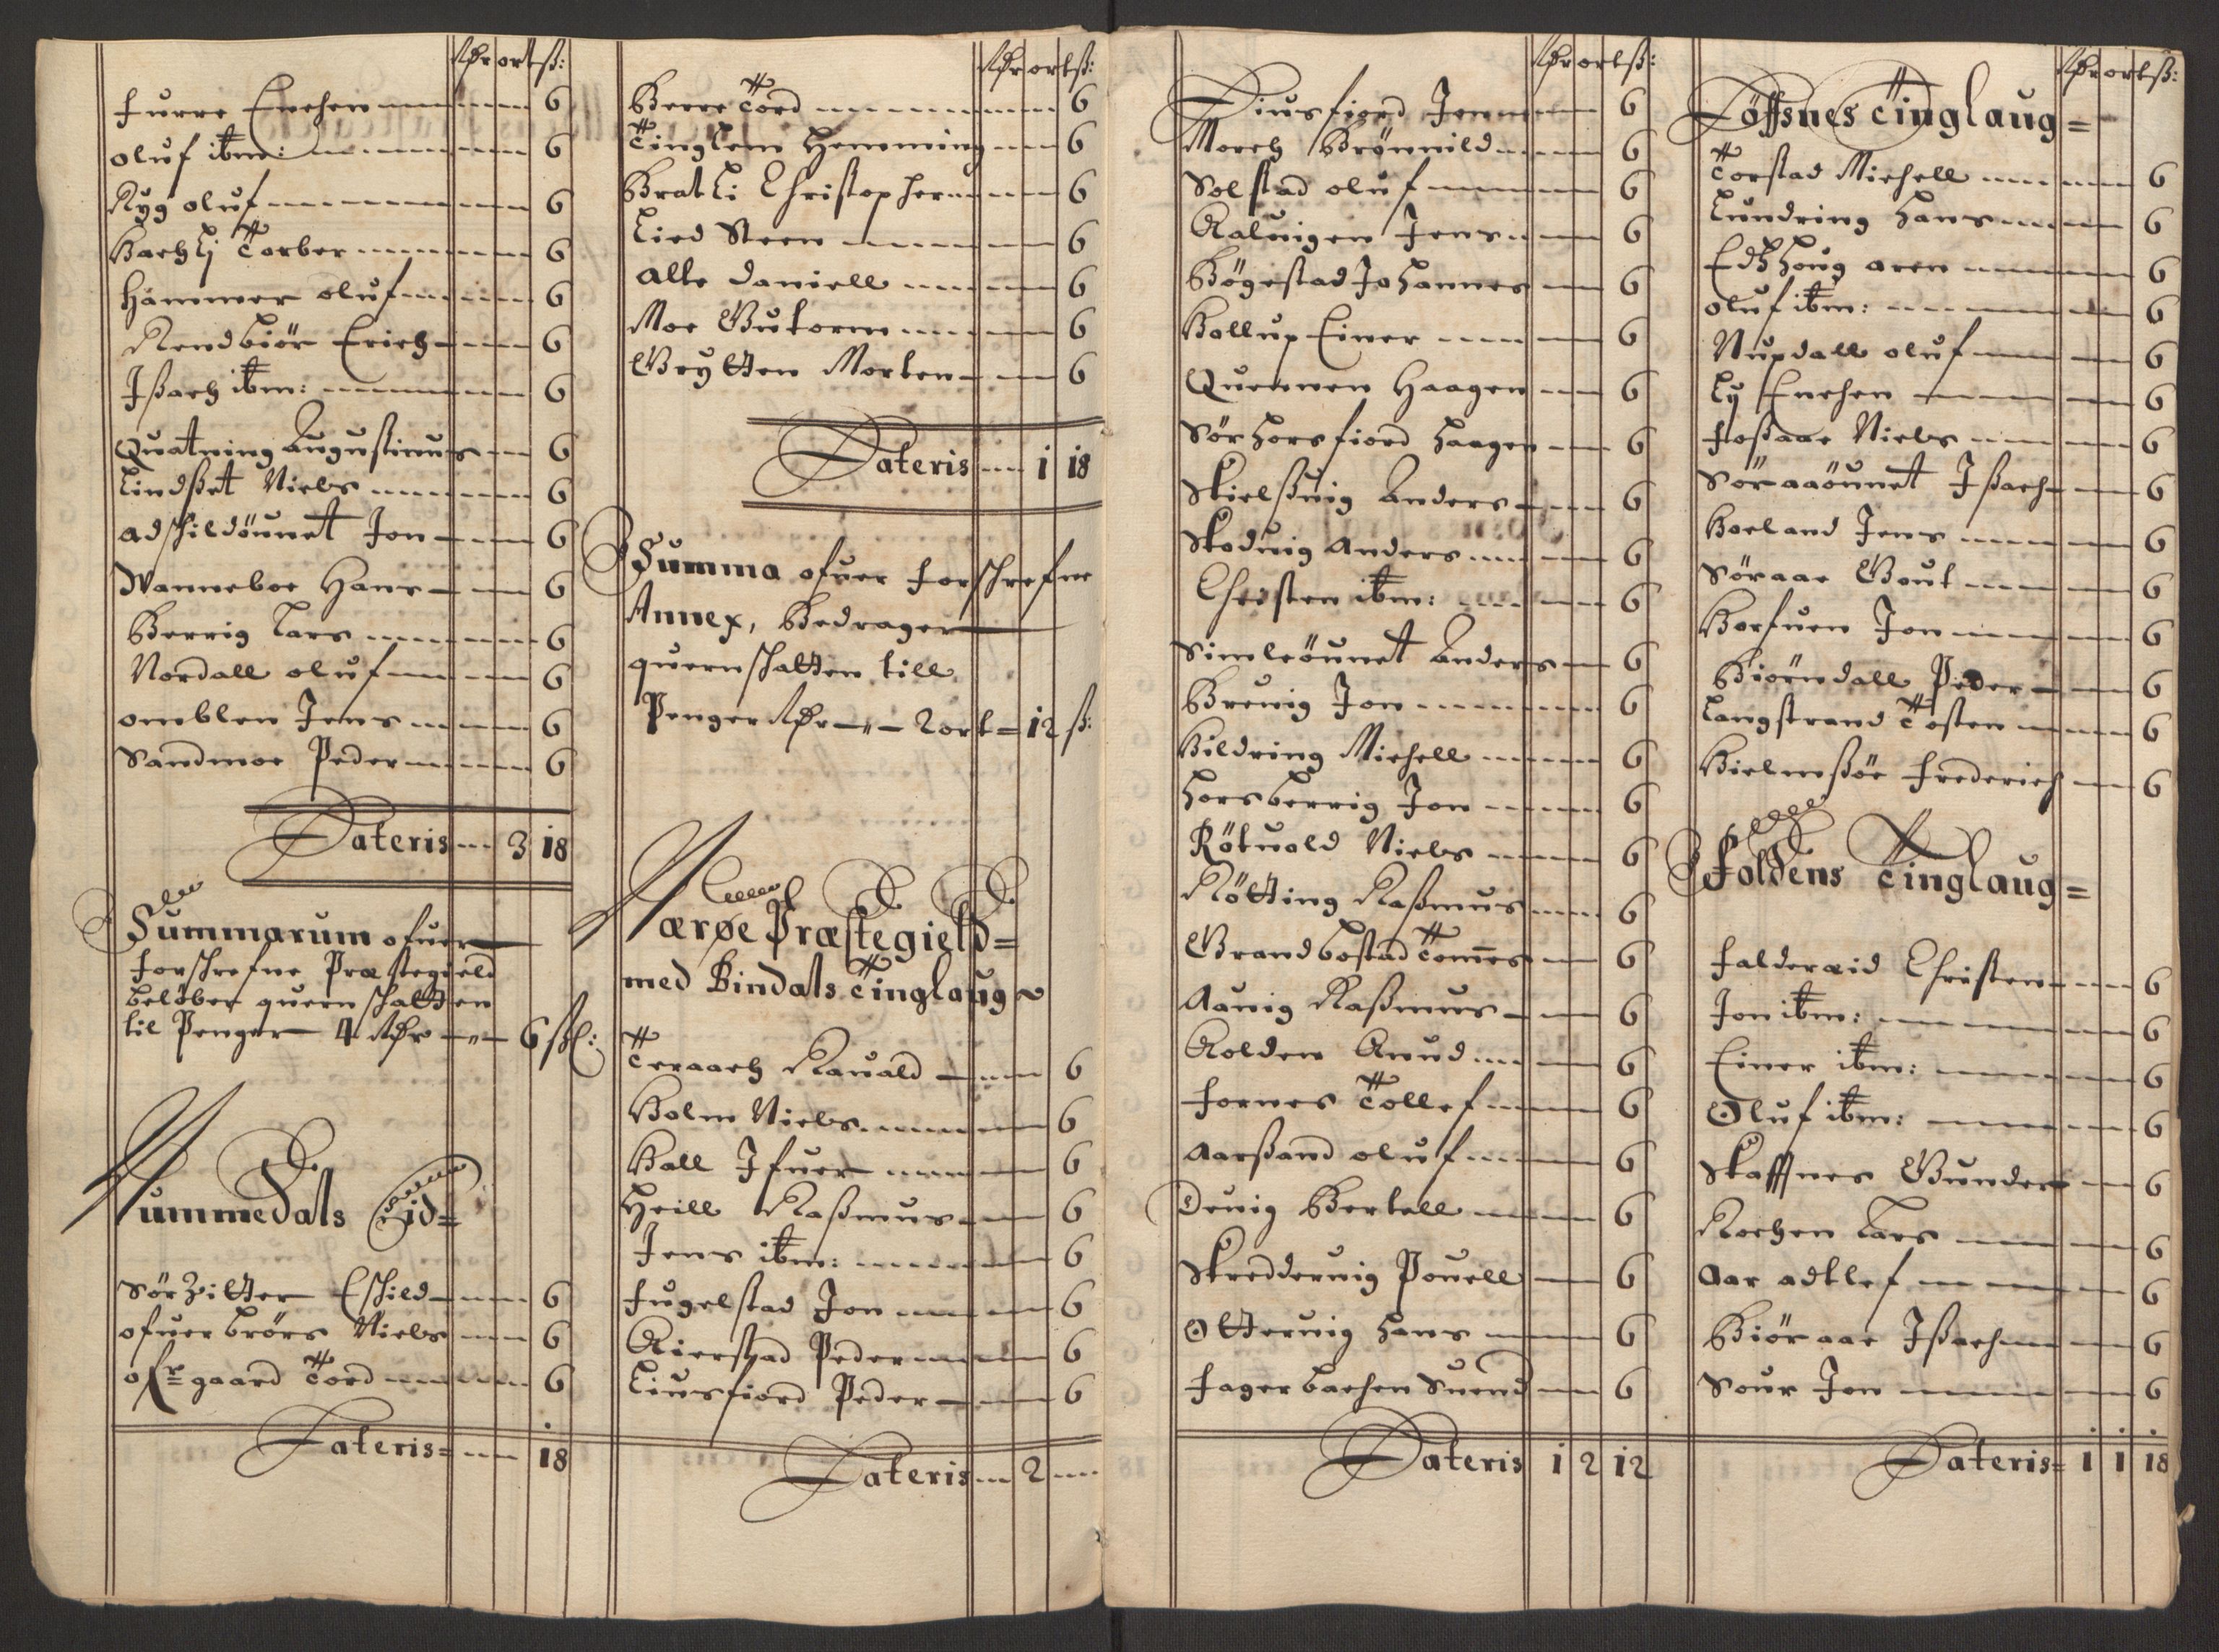 Rdr ort ß:
furre Enehen 6
oluf ibm: 6
Ryg oluf 6
Bachlj Torber 6
Hammer oluf 6
Rendbiör Erich 6
Jßach ibm: 6
Quatning Augustinus 6
Lindßet Niels 6
adschildöunet Jon 6
Wanneboe Hans 6
Berrig Lars 6
Nordall oluf 6
omblen Jens 6
Sandmoe Peder 6
Lateris 3 18
Summarum ofuer
forschrefne Præstegield
belöber quernschatten
til Penger 4 Rdr 6 sk:
Nummedals Eid
Sörzitter Eschild 6
ofuer brörs Niels 6
ofr gaard Tord 6
Lateris 18
Rdr ort ß:
Berre Tord 6
Tinglem Hemming 6
Bratli Christopher 6
Lied Steen 6
alte Daniell 6
Moe Gutorm 6
Grytten Morten 6
Lateris 1 18
Summa ofuer forschrefne
Annex, Bedrager
quernschatten till
Penger Rdr 2 ort 12 ß:
Nærøe Præstegield
med Bindals Tinglaug
Teraach Rauald 6
Holm Niels 6
Hall Ifuer 6
Heill Raßmus 6
Jens ibm: 6
fugelstad Jon 6
Kierstad Peder 6
Liusfiord Peder 6
Lateris 2
Rdr ort ß:
Liusfiord Jenn 6
Morch Brönnild 6
Solstad oluf 6
Kaluigen Jens 6
Bögestad Johannes 6
Hollup Einer 6
Quennen Haagen 6
Sörhorsfiord haagen 6
Skielßuig Anders 6
Skoduig Anders 6
Christen ibm: 6
Simleöunet Anders 6
Breuig Jon 6
Hildring Michell 6
horsberrig Jon 6
Rötuold Niels 6
Rötting Raßmus 6
Brandbostad Tomes 6
Aauig Raßmus 6
Kolden Knud 6
fornes Tollef 6
Aarßand oluf 6
Deuig Bertell 6
Skredderuig Pouell 6
Otteruig hans 6
fagerbachen Suend 6
Lateris 1 2 12
Rdr ort ß:
Löffsnes Tinglaug
Torstad Michell 6
Lundring hans 6
Edshoug aren 6
oluf ibm: 6
Nupdall oluf 6
Ly Enehen 6
foßaae Niels 6
Söraaöunet Jßach 6
Hoeland Jens 6
Söraae Gout 6
Horfuen Jon 6
Biörndall Peder 6
Langstrand Tosten 6
Hielmßöe frederich 6
Foldens Tinglaug
falderæid Christen 6
Jon ibm: 6
Einer ibm: 6
Oluf ibm: 6
Skaffnes Gunder 6
Rochen Lars 6
Aar adtlef 6
Biöraae Jßach 6
Sour Jon 6
Lateris 1 1 18